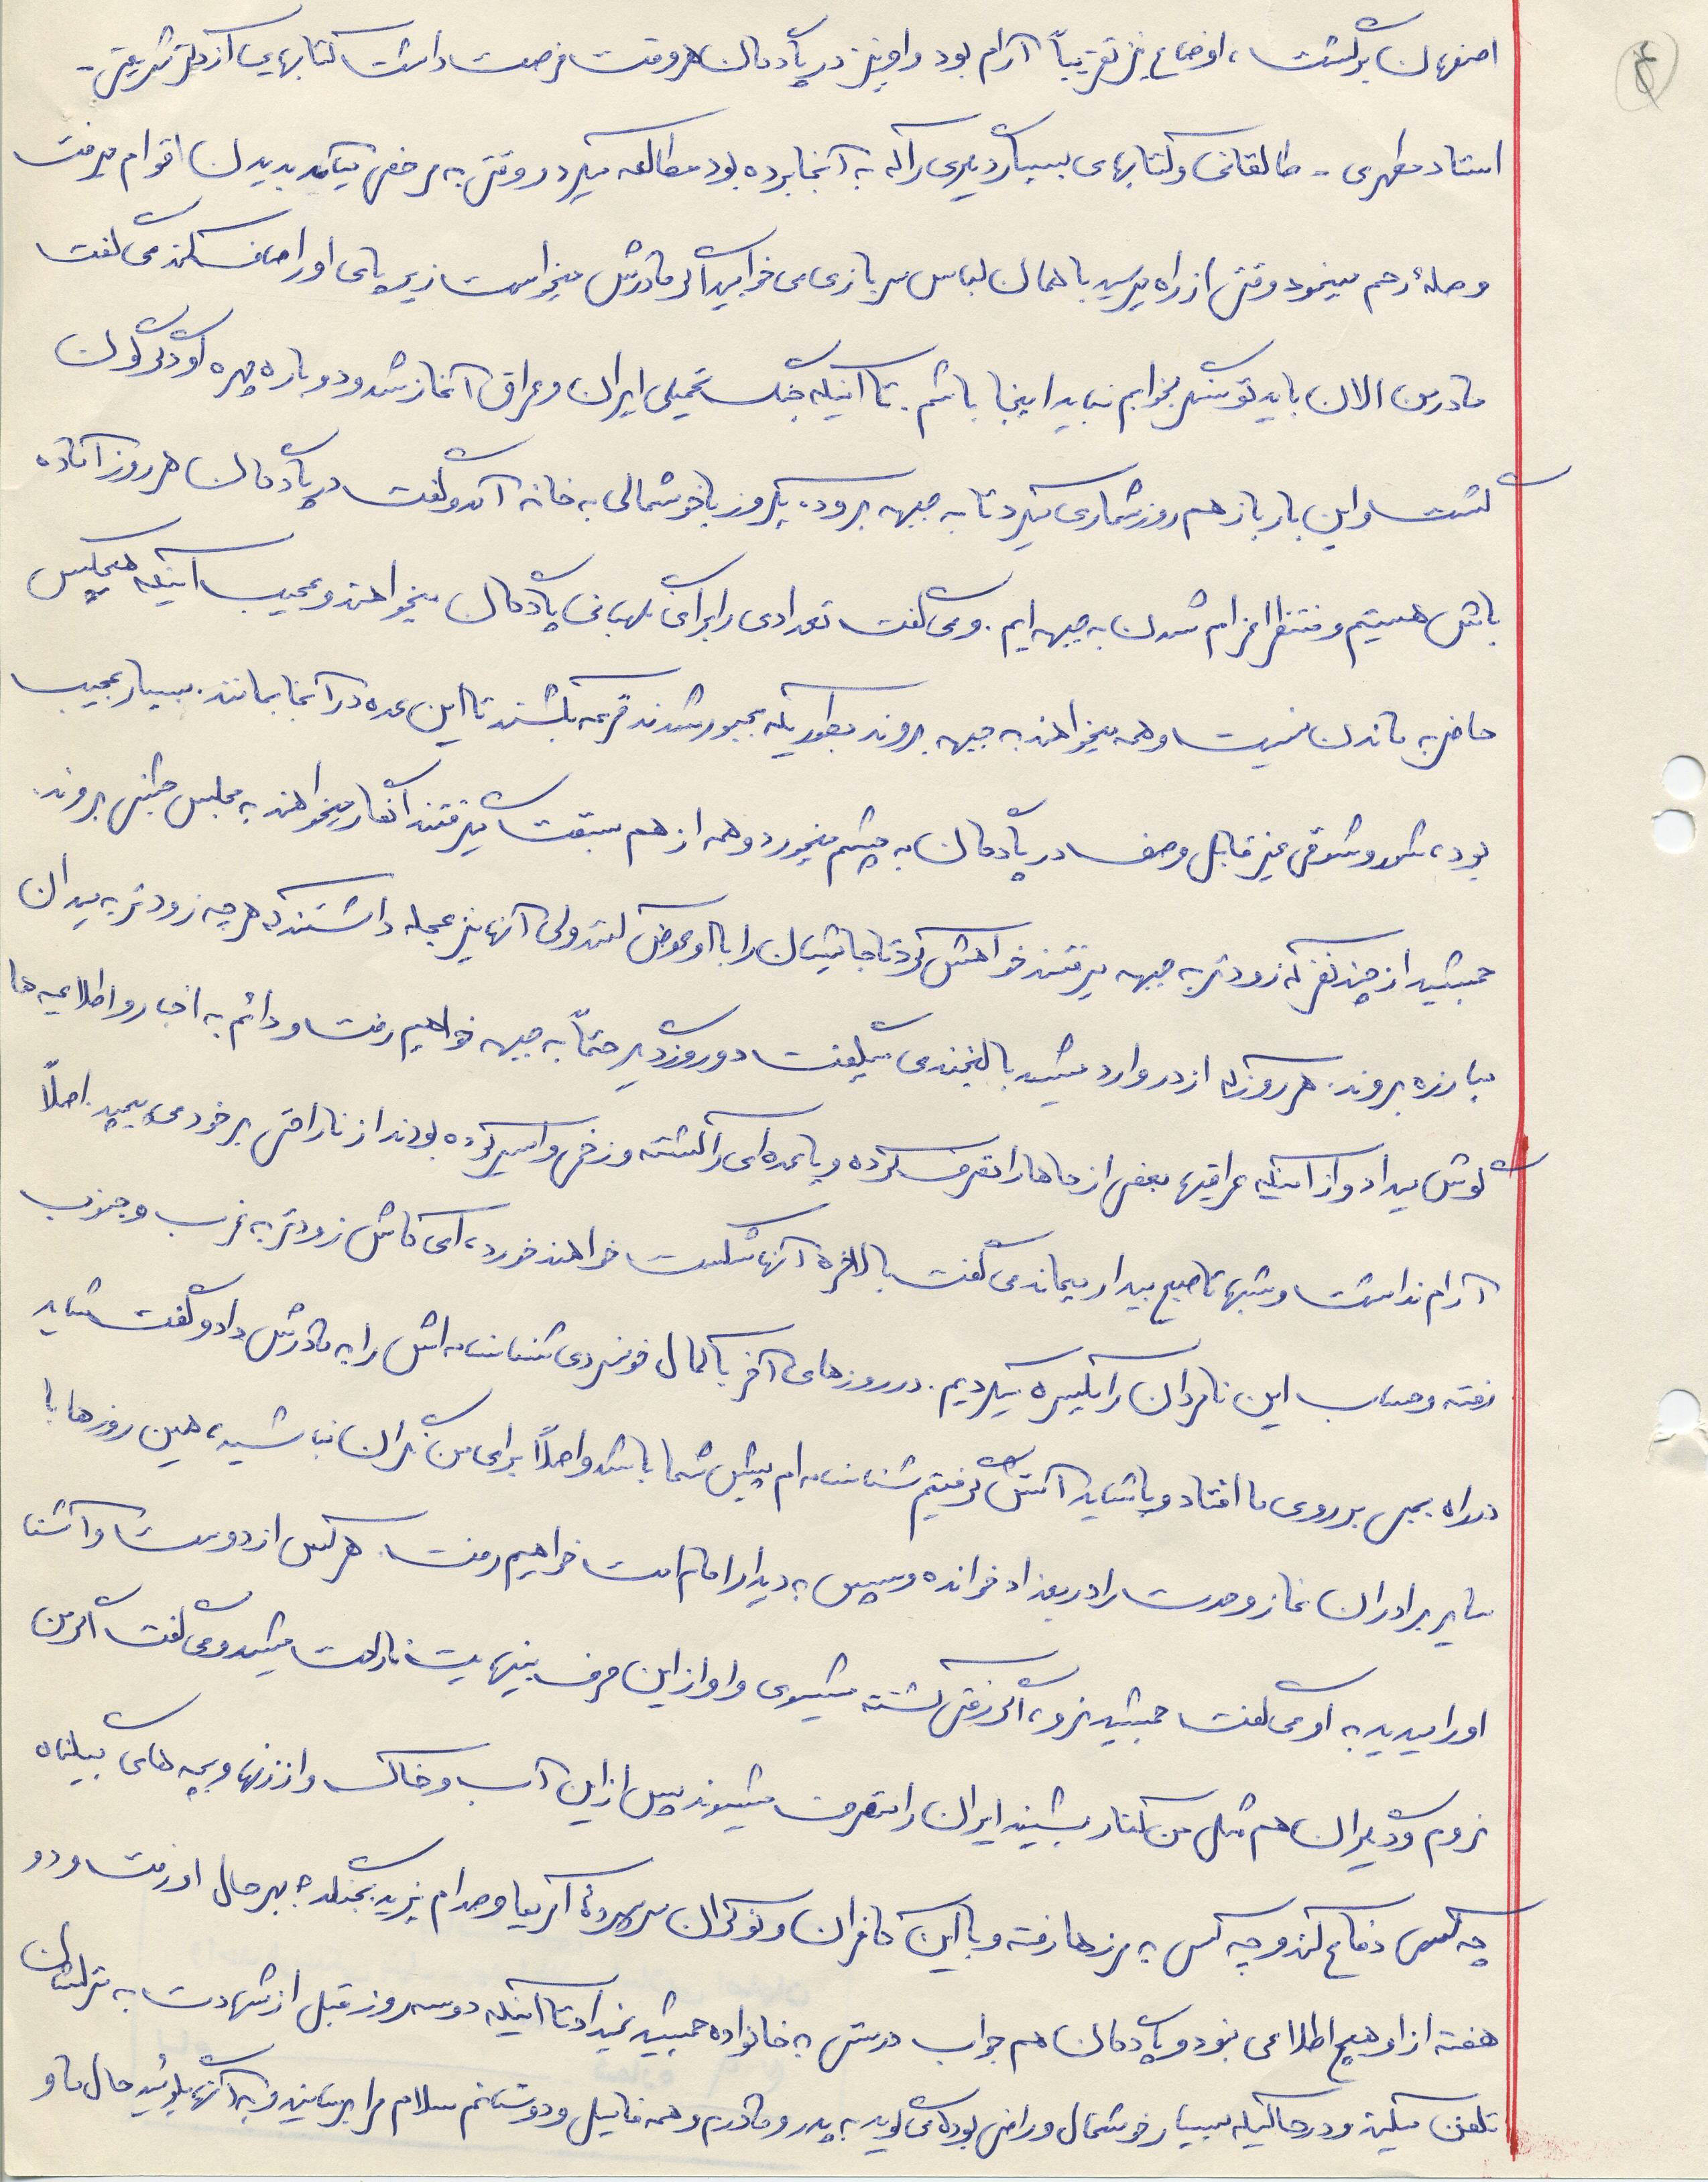 ۴
اصفهان برگشت، اوضاع نیز تقریباً آرام بود و او نیز در پادگان هر وقت فرصت داشت کتابهایی از دکتر شریعتی -
استاد مطهری - طالقانی و کتابهای بسیار دیگری را که به آنجا برده بود مطالعه میکرد و وقتی به مرخصی میآمد بدیدن اقوام میرفت
وصلهٔ رحم مینمود وقتی از راه میرسید با همان لباس سربازی می خوابید اگر مادرش میخواست زیر پای او را صاف کند می گفت
مادر من الان باید تو سنگر بخوابم نباید اینجا باشم. تا اینکه جنگ تحمیلی ایران و عراق آغاز شد و دوباره چهره او دگرگون
گشت و این بار باز هم روزشماری میکرد تا به جبهه برود. یکروز با خوشحالی به خانه آمد و گفت در پادگان هر روز آماده
باش هستیم و منتظر اعزام شدن به جبهه ایم. و می گفت تعدادی را برای نگهبانی پادگان میخواهند و عجیب اینکه هیچکس
حاضر به ماندن نیست و همه میخواهند به جبهه بروند بطوریکه مجبور شدند قرعه بکشند تا این عده در آنجا بمانند. بسیار عجیب
بود، شور و شوقی غیر قابل وصف در پادگان به چشم میخورد و همه از هم سبقت میگرفتند انگار میخواهند به مجلس جشنی بروند.
جمشید از چند نفر که زودتر به جبهه میرفتند خواهش کرد تا جایشان را با او عوض کنند ولی آنها نیز عجله داشتند که هر چه زودتر به میدان
مبارزه بروند. هر روز که از در وارد میشد با لبخندی میگفت دو روز دیگر حتماً به جبهه خواهیم رفت و دائم به اخبار و اطلاعیه ها
گوش میداد و از اینکه عراقیها بعضی از جاها را تصرف کرده و یا عده ای را کشته و زخمی و اسیر کرده بودند از ناراحتی بر خود می پیچید. اصلاً
آرام نداشت و شبها تا صبح بیدار میماند می گفت بالاخره آنها شکست خواهند خورد، ای کاش زودتر به غرب و جنوب
رفته و حساب این نامردان را یکسره میکردیم. در روزهای آخر با کمال خونسردی شناسنامه اش را به مادرش داد و گفت شاید
در راه بمبی بر روی ما افتاد و یا شاید آتش گرفتیم شناسنامه ام پیش شما باشد و اصلاً برای من نگران نباشید، همین روزها با
سایر برادران نماز وحدت را در بغداد خوانده و سپس به دیدار امام امت خواهیم رفت. هر کس از دوست و آشنا
او را میدید به او می گفت جمشید نرو، اگر رفتی کشته میشوی و او از این حرف بینهایت ناراحت میشد و می گفت اگر من
نروم و دیگران هم مثل من کنار بنشینند ایران را متصرف میشوند پس از این آب و خاک و از زنها و بچه های بیگناه
چه کسی دفاع کند و چه کسی به مرزها رفته و با این کافران و نوکران سرسپردهٔ آمریکا و صدام یزید بجنگد؟ بهرحال او رفت و دو
هفته از او هیچ اطلاعی نبود و پادگان هم جواب درستی به خانواده جمشید نمیداد تا اینکه دو سه روز قبل از شهادت به منزلشان
تلفن میکند و در حالیکه بسیار خوشحال و راضی بوده می گوید به پدر و مادرم و همه فامیل و دوستانم سلام مرا برسانید و به آنها بگوئید حال ما و